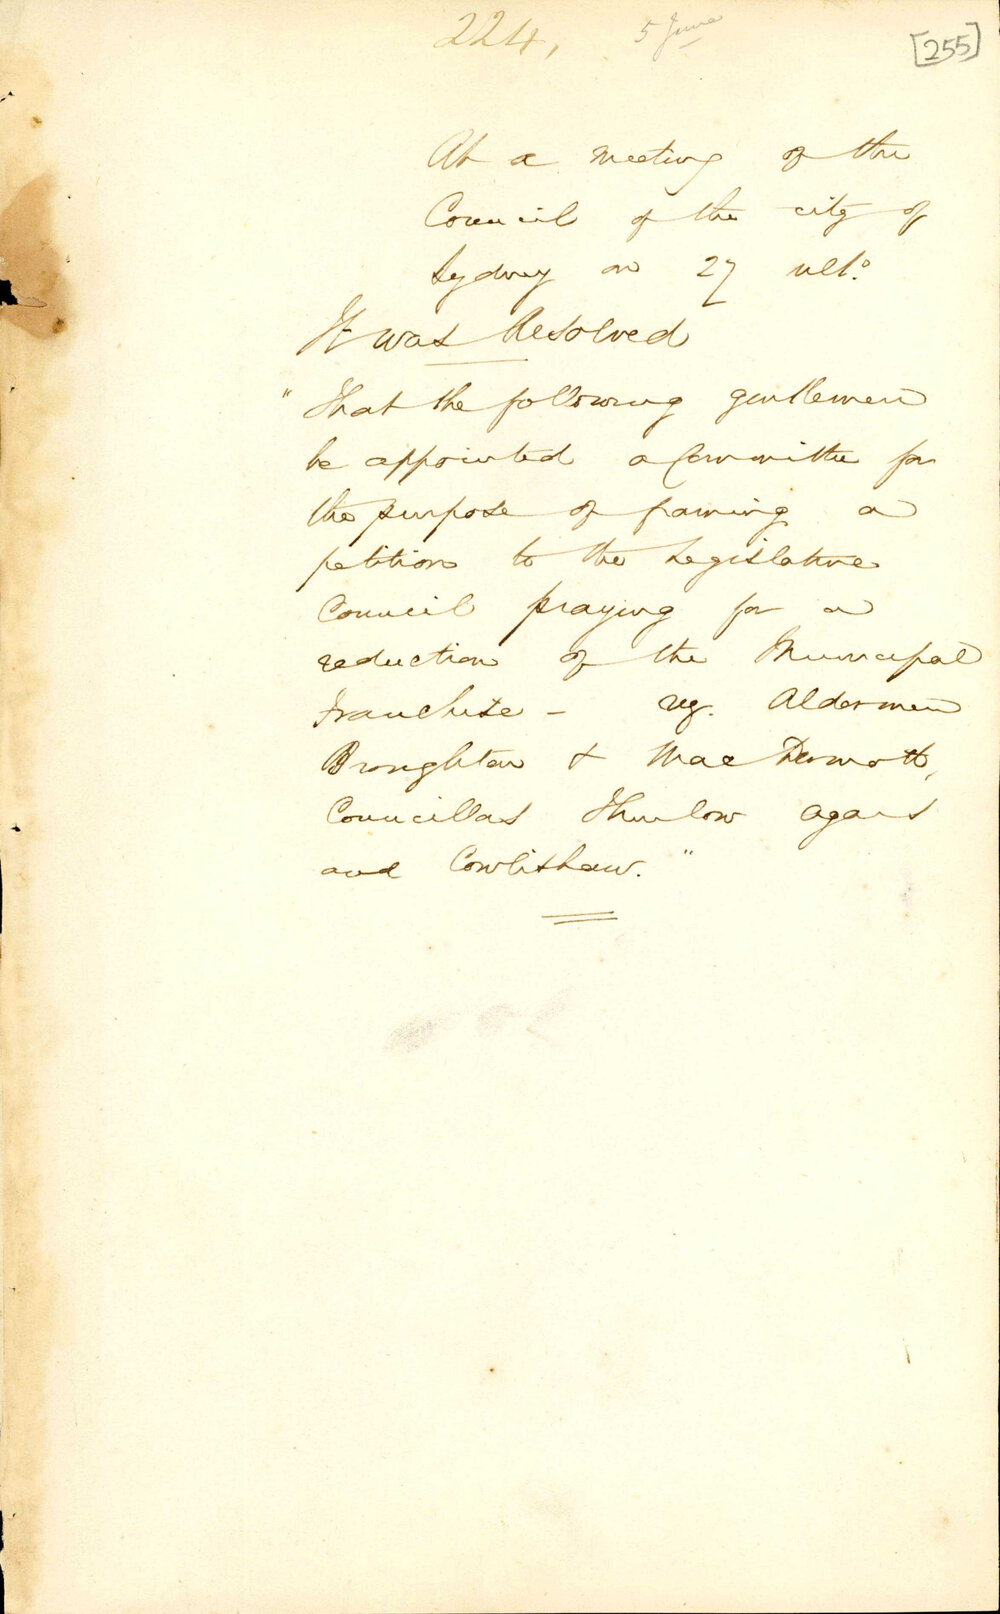 224,
5 June
[255]
At a meeting of the
Council of the city of
Sydney on 27 ulto
It was Resolved
"That the following gentlemen
be appointed a Committee for
the purpose of framing a
petition to the Legislative
Council praying for a
reduction of the Municipal
Franchise - viz. Aldermen
Broughton & Mac Dermott,
Councillors Thurlow agars
and Cowlishaw."